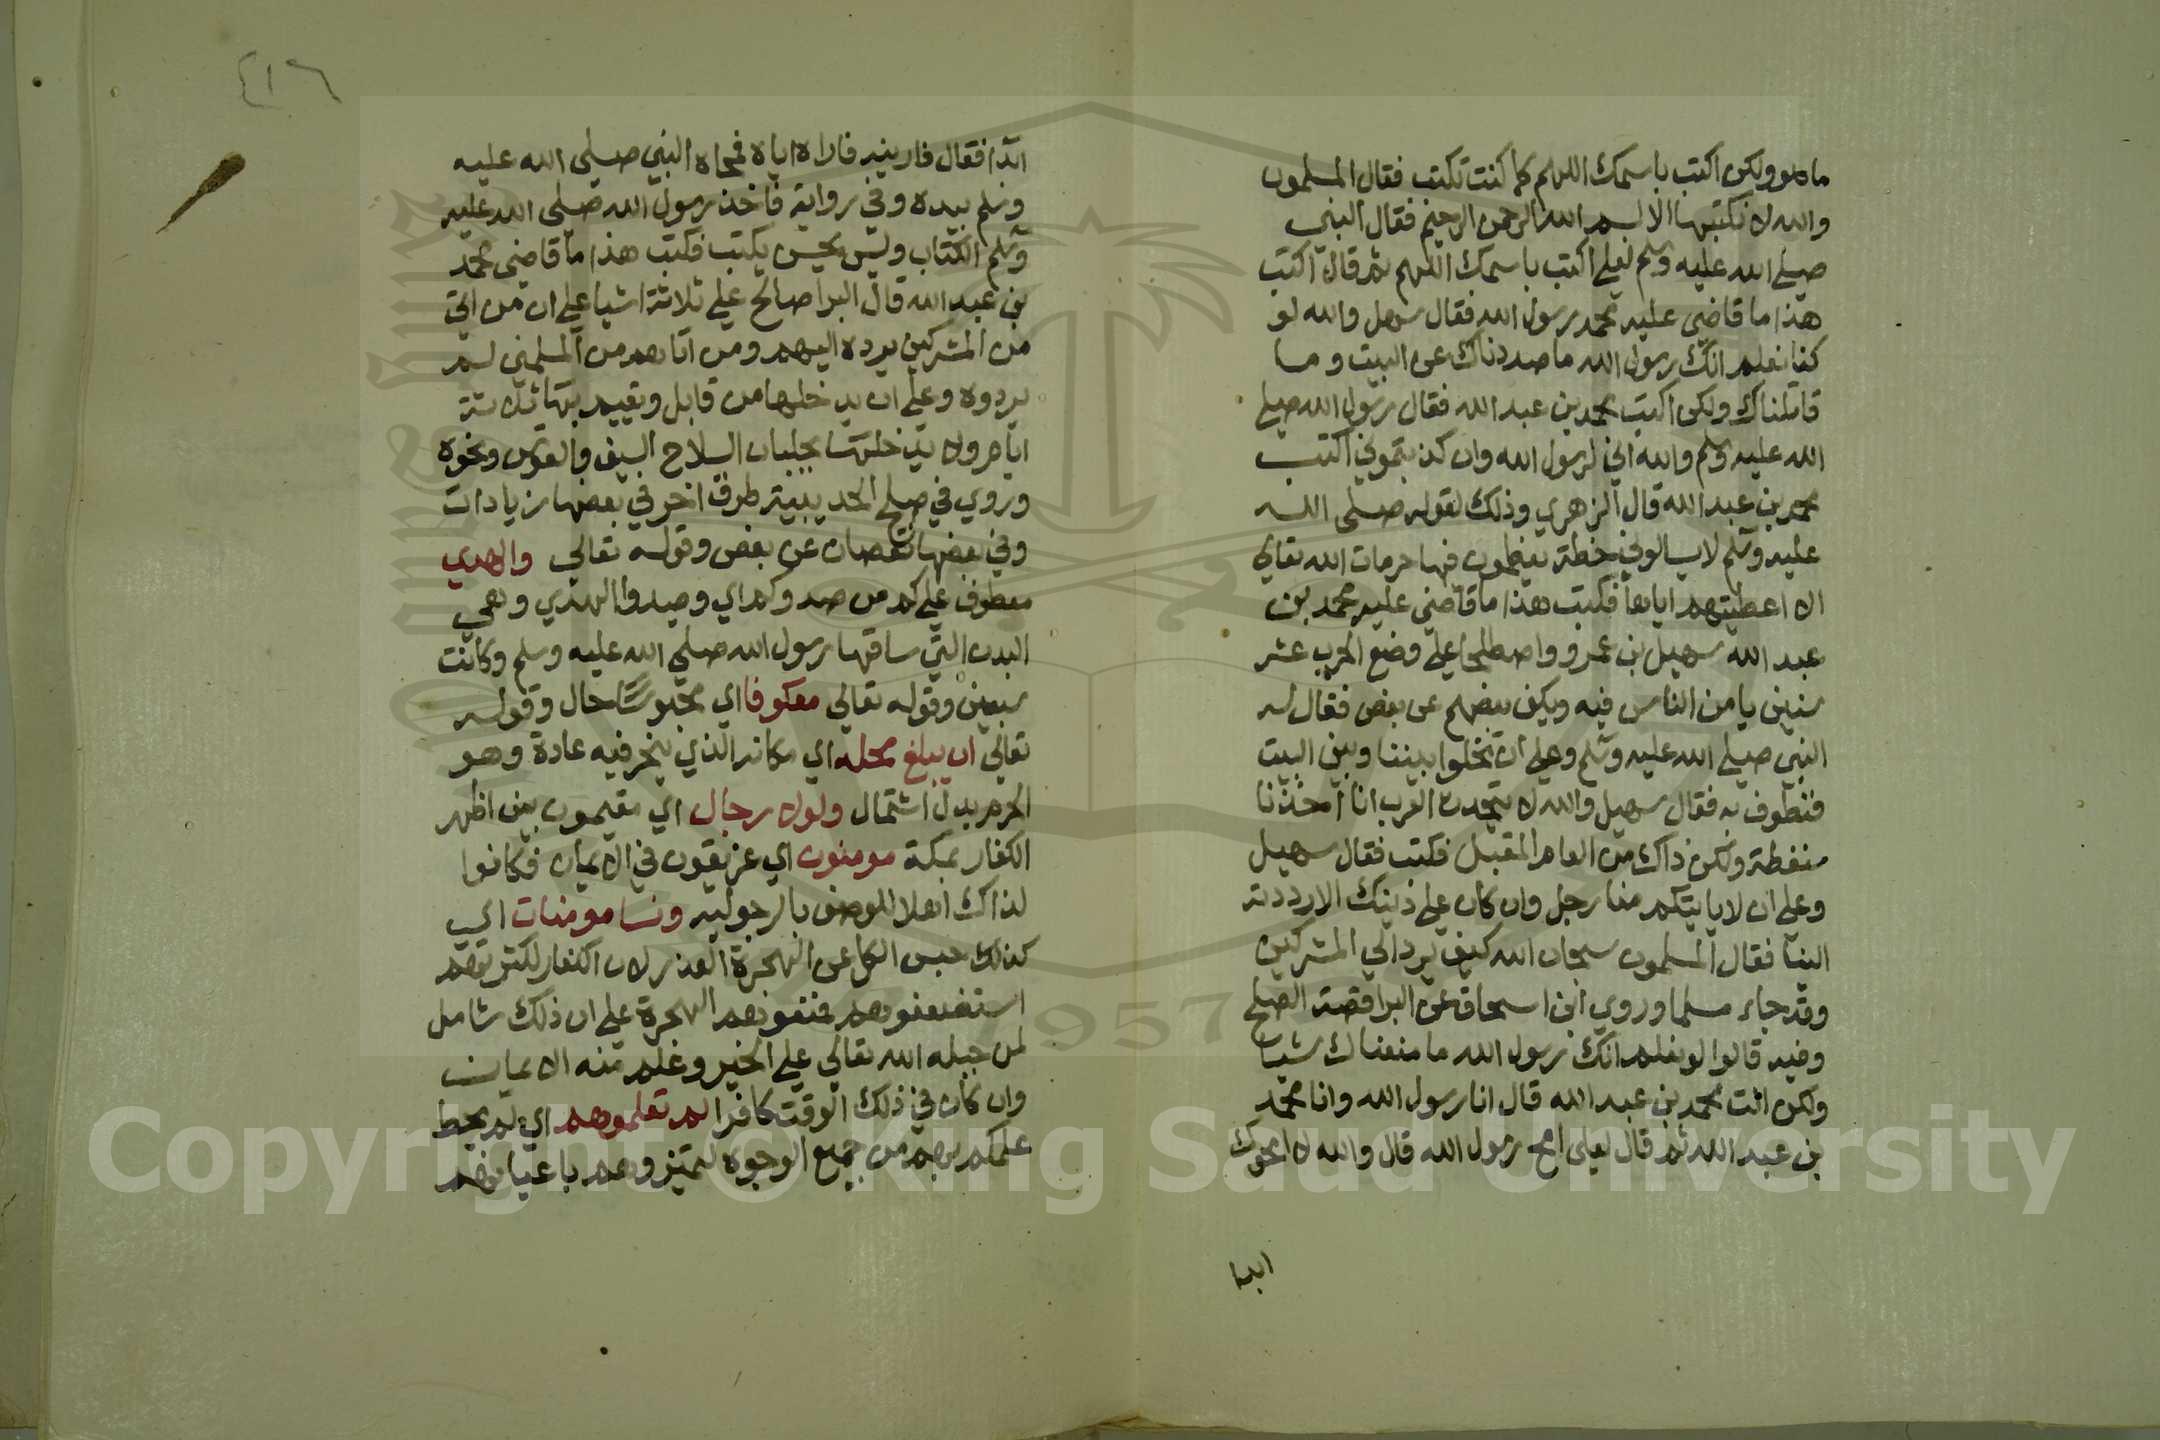 ما هو ولكن اكتب باسمك اللهم كما كنت تكتب فقال المسلمون
والله لا نكتبها الا بسم الله الرحمن الرحيم فقال النبي
صلي الله عليه وسلم لعلي اكتب باسمك اللهم ثم قال اكتب
هذا ما قاضي عليه محمد رسول الله فقال سهيل والله لو
كنا نعلم انك رسول الله ما صددناك عن البيت وما
قاتلناك ولكن اكتب محمد بن عبد الله فقال رسول الله صلي
الله عليه وسلم والله اني لرسول الله وان كذبتموني اكتب
محمد بن عبد الله قال الزهري وذلك لقوله صلى الله
عليه وسلم لا يسالوني خطة يعظمون فيها حرمات الله تعالي
الا اعطيتهم اياها فكتب هذا ما قاضي عليه محمد بن
عبد الله سهيل بن عمرو واصطلحا علي وضع الحرب عشر
سنين يامن الناس فيه ويكف بعضهم عن بعض فقال له
النبي صلي الله عليه وسلم وعلي ان تخلوا بيننا وبين البيت
فنطوف به فقال سهيل والله لا تتحدث العرب انا اخذنا
ضغطة ولكن ذاك من العام المقبل فكتب فقال سهيل
وعلي ان لا ياتيكم منا رجل وان كان علي دينك الا رددته
الينا فقال المسلمون سبحان الله كيف يرد الي المشركين
وقد جاء مسلما وروي ابن اسحاق عن البرا قصة الصلح
وفيه قالوا لو نعلم انك رسول الله ما منعناك شيا
ولكن انت محمد بن عبد الله قال انا رسول الله وانا محمد
بن عبد الله ثم قال لعلي امح رسول الله قال والله لا امحوك
ابدا
٤١٦
ابدا فقال فارينيه فاراه اياه فمحاه النبي صلى الله عليه
وسلم بيده وفي رواية فاخذ رسول الله صلى الله عليه
وسلم الكتاب وليس يحسن يكتب فكتب هذا ما قاضي محمد
بن عبد الله قال البرا صالح علي ثلاثة اشيا علي ان من اتي
من المشركين يرده اليهم ومن اتاهم من المسلمين لم
يردوه وعلي ان يدخلها من قابل ويقيم بها ثلاثة
ايام ولا يدخلها بجلبان السلاح السيف والقوس ونحوه
وروي في صلح الحديبية طرق اخر في بعضها زيادات
وفي بعضها نقصان عن بعض وقوله تعالي والهدي
معطوف علي كم من صدوكم اي وصدوا الهدي وهي
البدن التي ساقها رسول الله صلي الله عليه وسلم وكانت
سبعين وقوله تعالي معكوفا اي محبوسا حال وقوله
تعالي ان يبلغ محله اي مكانه الذي ينحر فيه عادة وهو
الحرم بدل اشتمال ولولا رجال اي مقيمون بين اظهر
الكفار بمكة مومنون اي عريقون في الايمان فكانوا
لذاك اهلا للوصف بالرجوليه ونسا مومنات اي
كذلك حبس الكل عن الهجرة العذر لان الكفار لكثرتهم
استضعفوهم فمنعوهم الهجرة علي ان ذلك شامل
لمن جبله الله تعالي علي الخير وعلم منه الايمان
وان كان في ذلك الوقت كافرا لم تعلموهم اي لم يحط
علمكم بهم من جميع الوجوه لتميزوهم باعيانهم